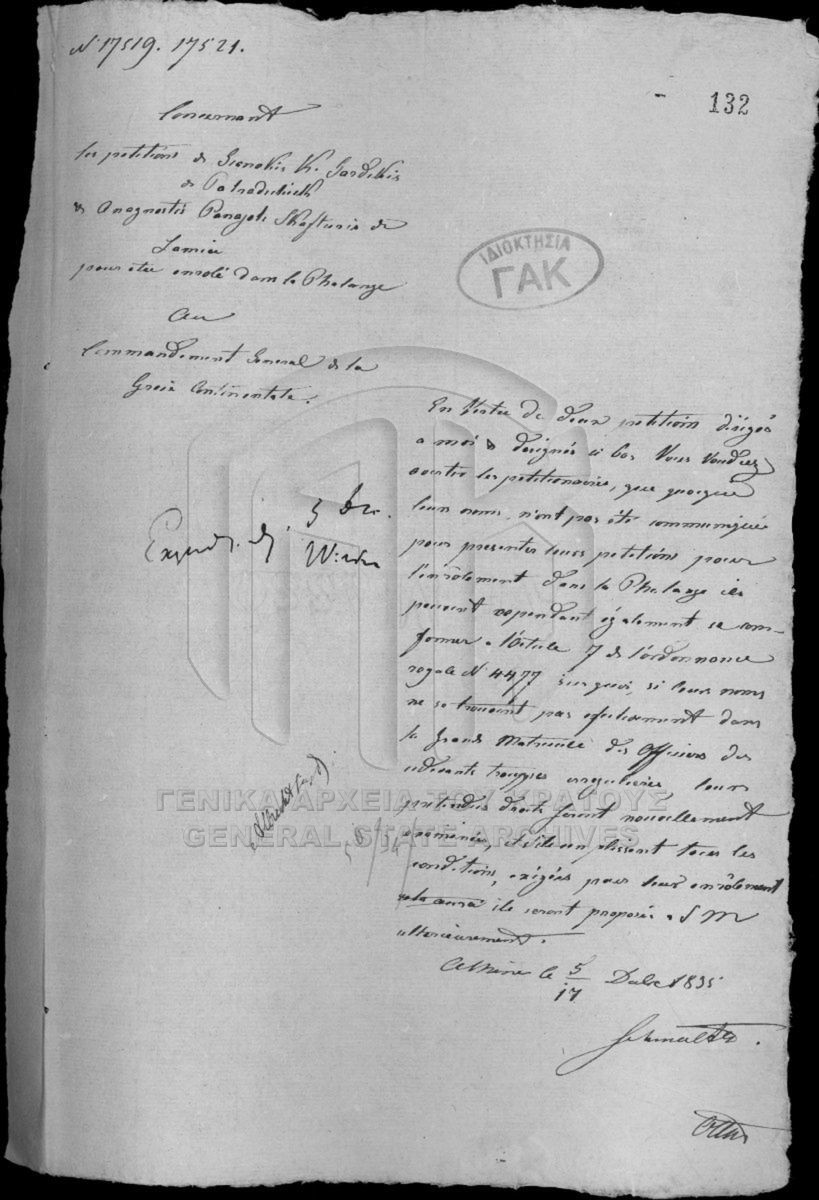 N 17519. 17521.
132
Concernant
les petitions de Gianakis K. Gardikis
de Patradschick
& Anagnostis Panajoti Skafturis de
Lamia
pour etre enrolé dans la Phalange
Au
Commandement General de la
Grece Continentale.
ΙΔΙΟΚΤΗΣΙΑ
ΓΑΚ
En Vertu de deux petitions dirigés
a moi & designés ci bas Vous Voudrez
avertir les petitionaires, que quoique
leurs noms, n'ont pas été communiqués
pour presenter leurs petitions pour
l'enrôlement dans la Phalange ils
peuvent cependant également se con-
former a l'Article 7 de l'ordonnance
royale N 4477 sur quoi, si leurs noms
ne se trouvent pas effectivement dans
la Grande Matricule des Officiers des
cidevants trouppes irregulieres leurs
pretendus droits seront nouvellement
examinés, et s'ils remplissent tous les
conditions, exigées pour leur enrôlement
ils seront proposés a S M
ulterieurement.
Expéd. d. 5 Dec.
ΓΕΝΙΚΑ ΑΡΧΕΙΑ ΤΟΥ ΚΡΑΤΟΥΣ
GENERAL STATE ARCHIVES
Athene le 5/17 Dbre 1835
Schmaltz.